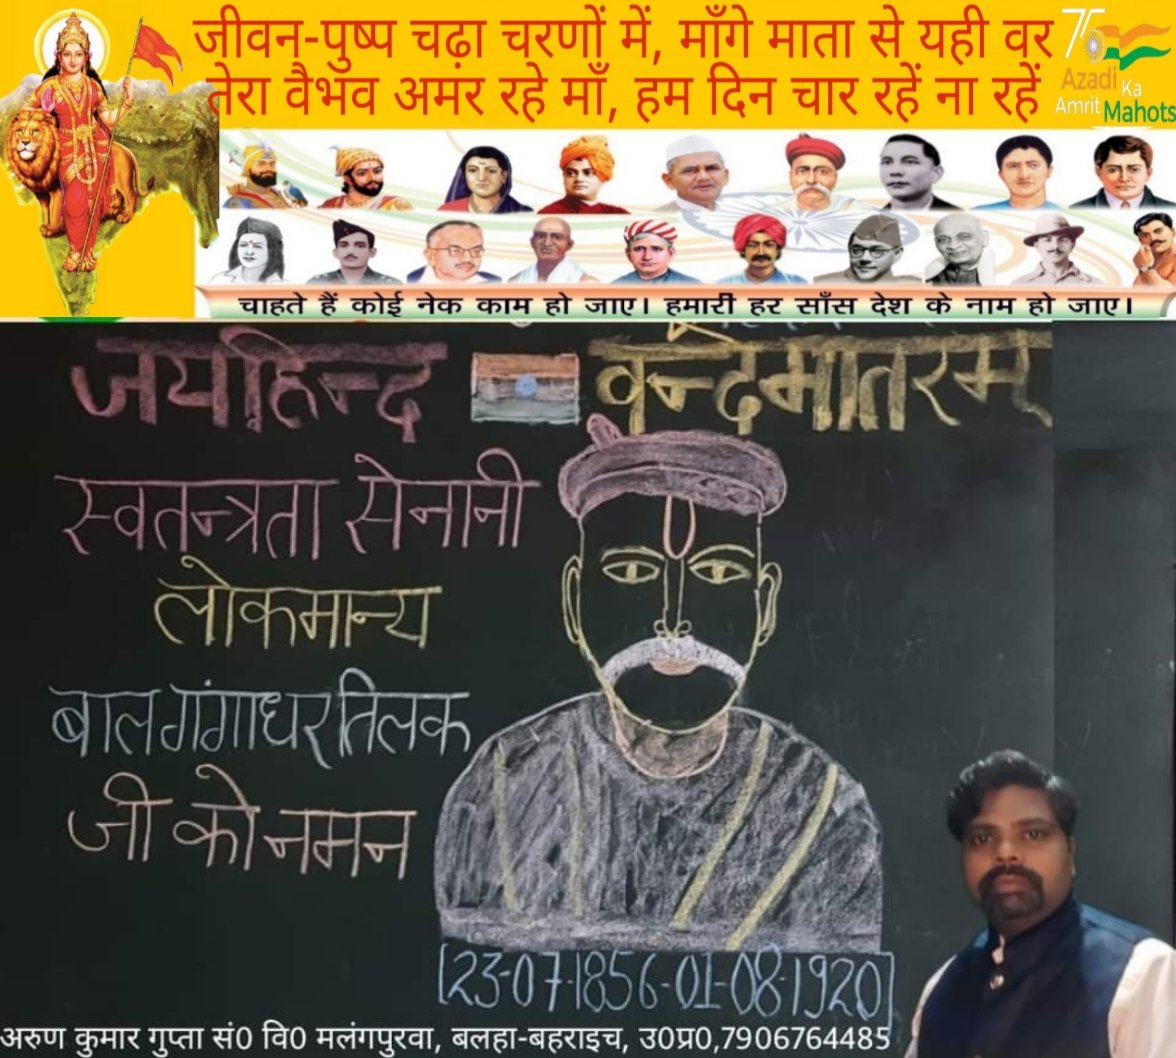 जीवन-पुष्प चढ़ा चरणों में, माँगे माता से यही वर
तेरा वैभव अमर रहे माँ, हम दिन चार रहें ना रहें
75
Azadi Ka
Amrit Mahots
चाहते हैं कोई नेक काम हो जाए। हमारी हर साँस देश के नाम हो जाए।
जयहिन्द वन्देमातरम्
स्वतन्त्रता सेनानी
लोकमान्य
बाल गंगाधर तिलक
जी को नमन
[23-07-1856-01-08-1920]
अरुण कुमार गुप्ता सं0 वि0 मलंगपुरवा, बलहा-बहराइच, उ0प्र0,7906764485